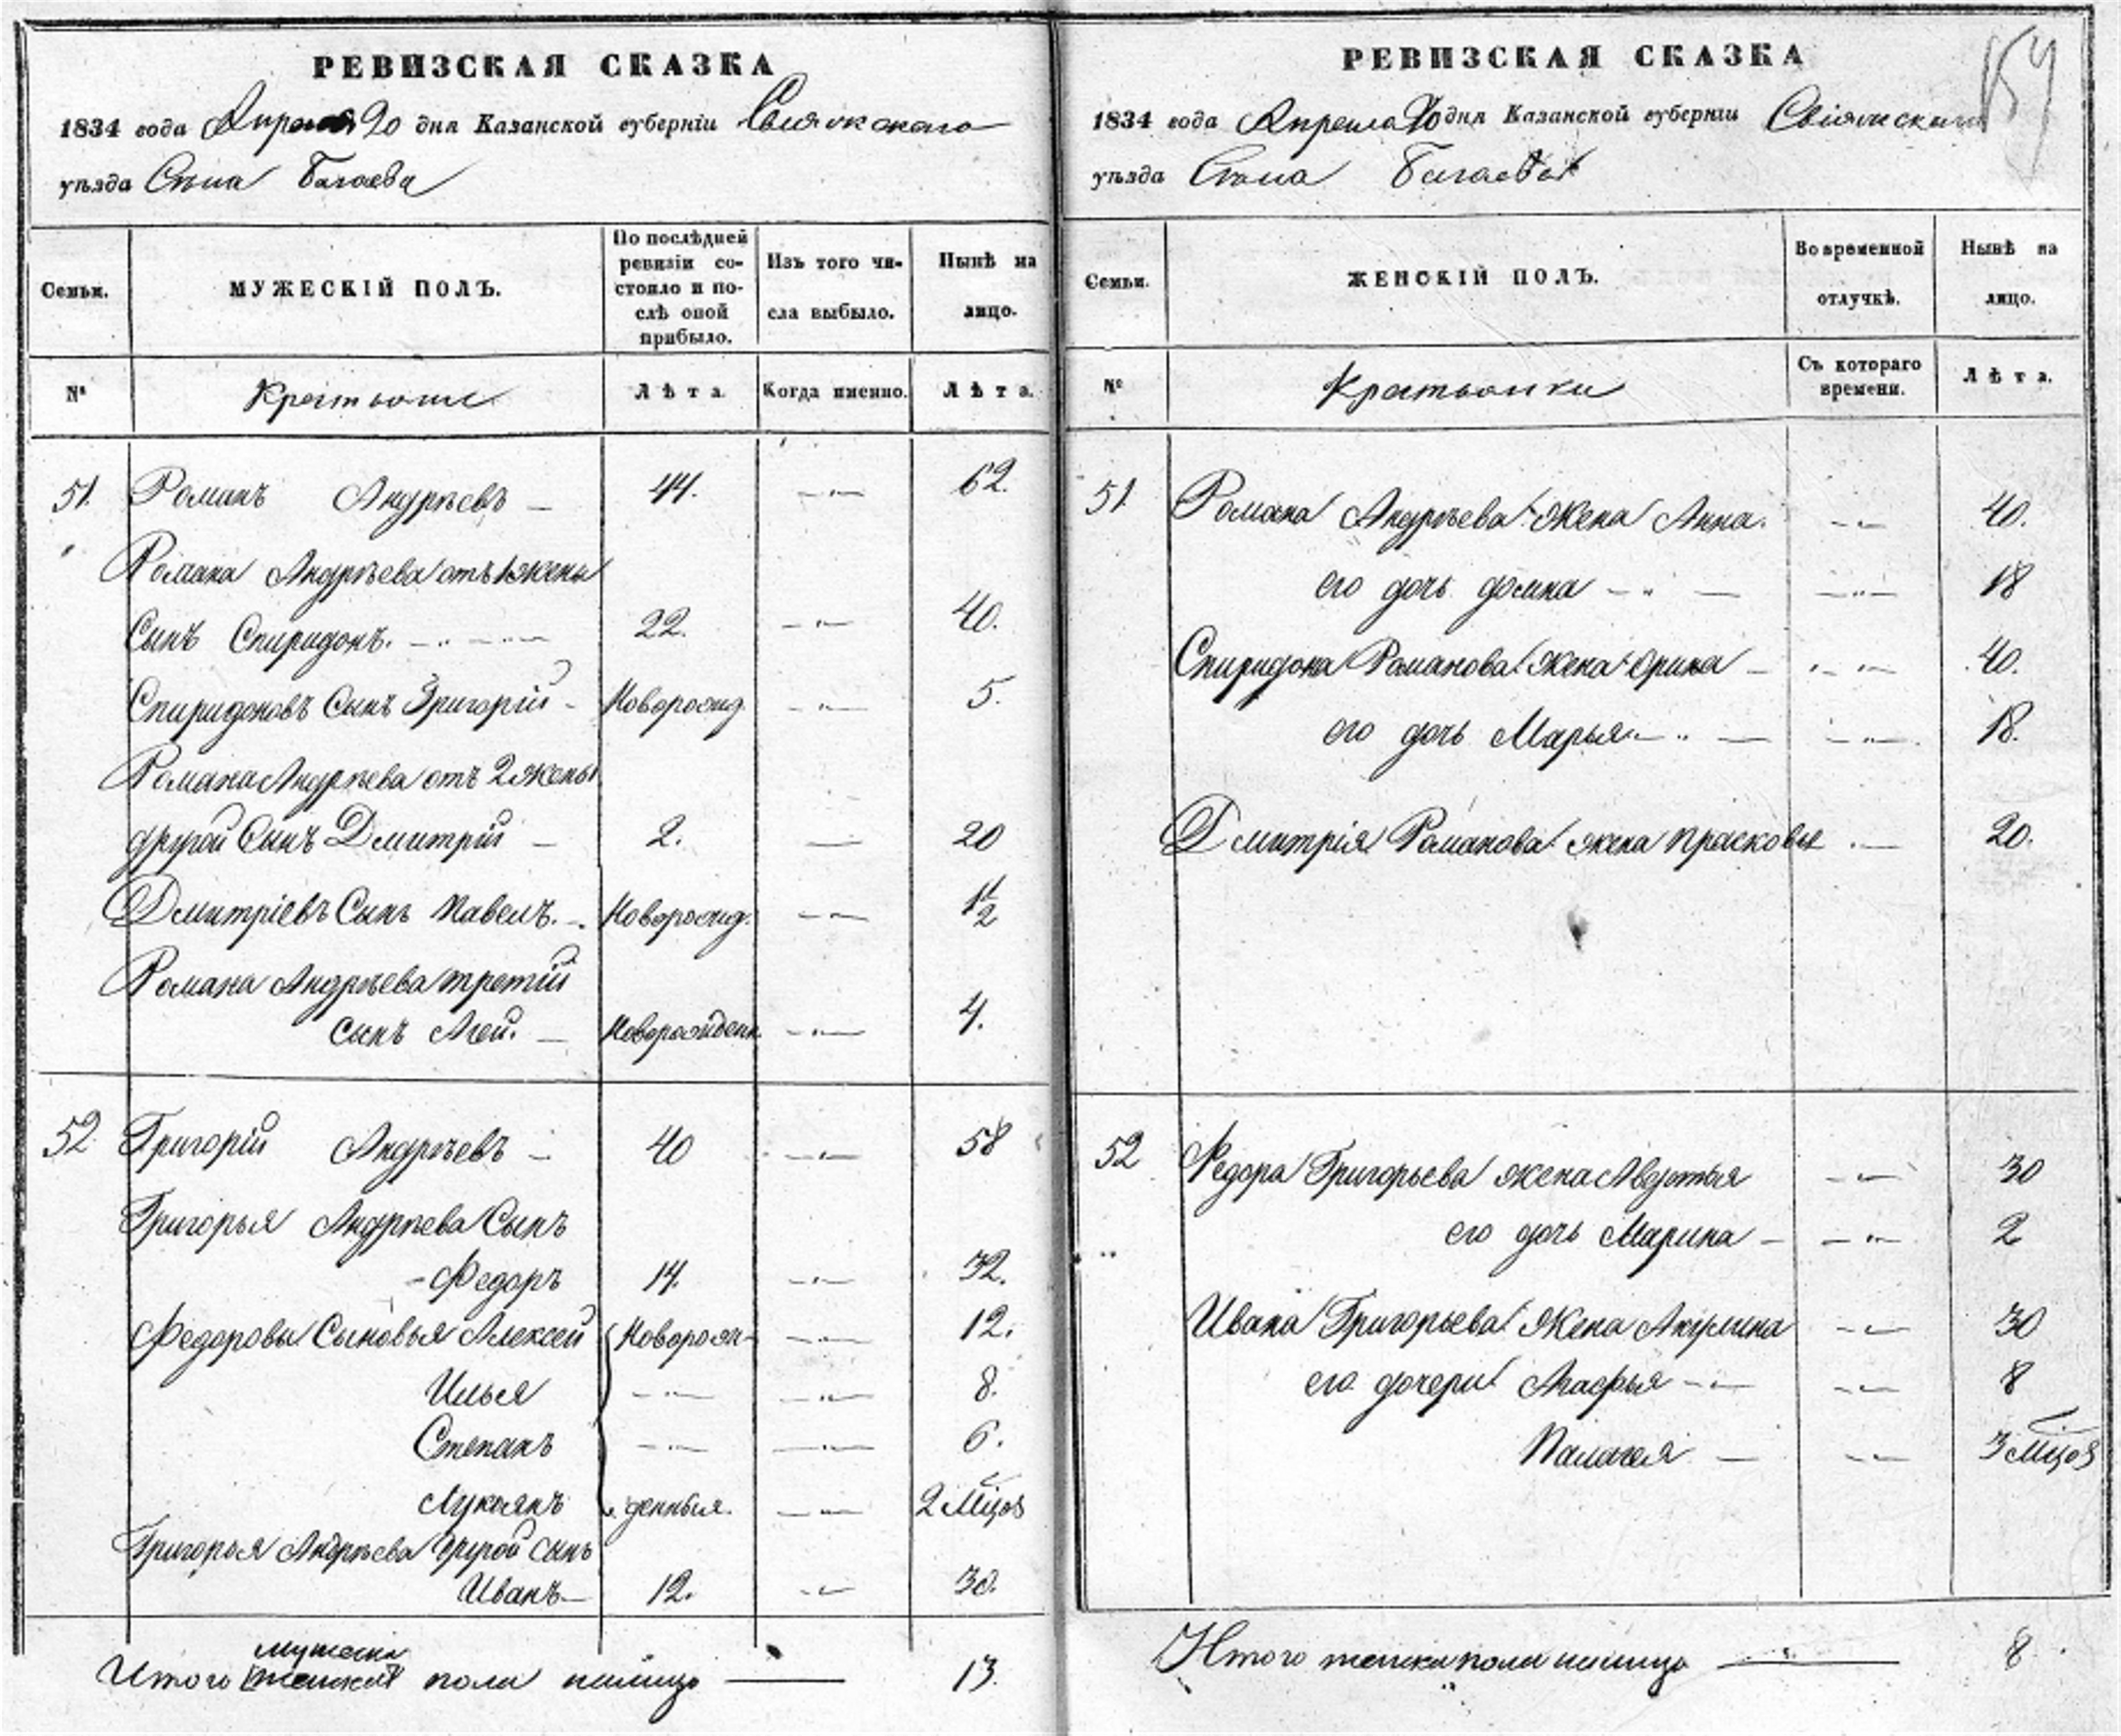 РЕВИЗСКАЯ СКАЗКА
1834 года Апреля 20 дня Казанской губерніи Свіяжскаго
уѣзда Села Багаева
Семьи.
МУЖЕСКІЙ ПОЛЪ.
По послѣдней ревизіи состояло и послѣ оной прибыло.
Изъ того числа выбыло.
Нынѣ на лицо.
№
Крестьяне
Лѣта.
Когда именно.
Лѣта.
51. Романъ Андреевъ — 44. —"— 62.
Романа Андрѣева отъ 1 жены
Сынъ Спиридонъ. 22. —"— 40.
Спиридоновъ Сынъ Григорій - Новорожд. —"— 5.
Романа Андрѣева отъ 2 жены
другой Сынъ Дмитрій — 2. — 20
Дмитріевъ Сынъ Павелъ. Новорожд. —"— 1½
Романа Андрѣева третій
сынъ Агей. — Новорожденн. —"— 4.
52 Григорій Андрѣевъ — 40 —"— 58
Григорья Андрѣева Сынъ
- Федоръ 14. —"— 32.
Федоровы Сыновья Алексей Новорож- —"— 12.
Илья —"— —"— 8.
Степанъ —"— —"— 6.
Лукьянъ денныя. —"— 2 мѣцов
Григорья Андрѣева другой сынъ
Иванъ — 12. —"— 30.
мужеска
Итого женска пола налицо — 13.
РЕВИЗСКАЯ СКАЗКА
159
1834 года Апреля 20 дня Казанской губерніи Свіяжскаго
уѣзда Села Багаева
Семьи.
ЖЕНСКІЙ ПОЛЪ.
Во временной отлучкѣ.
Нынѣ на лицо.
№
Крестьянки
Съ котораго времени.
Лѣта.
51 Романа Андрѣева жена Анна. —"— 40.
его дочь домна —"— —"— 18
Спиридона Романова жена Орина — —"— 40.
его дочь Марья —"— —"— 18.
Дмитрія Романова жена Прасковья — 20.
52 Федора Григорьева жена Авдотья —"— 30
его дочь Марина — —"— 2
Ивана Григорьева жена Акулина —"— 30
его дочери Агафья —"— —"— 8
Палагея — —"— 3 мѣцов
Итого женска пола налицо — 8